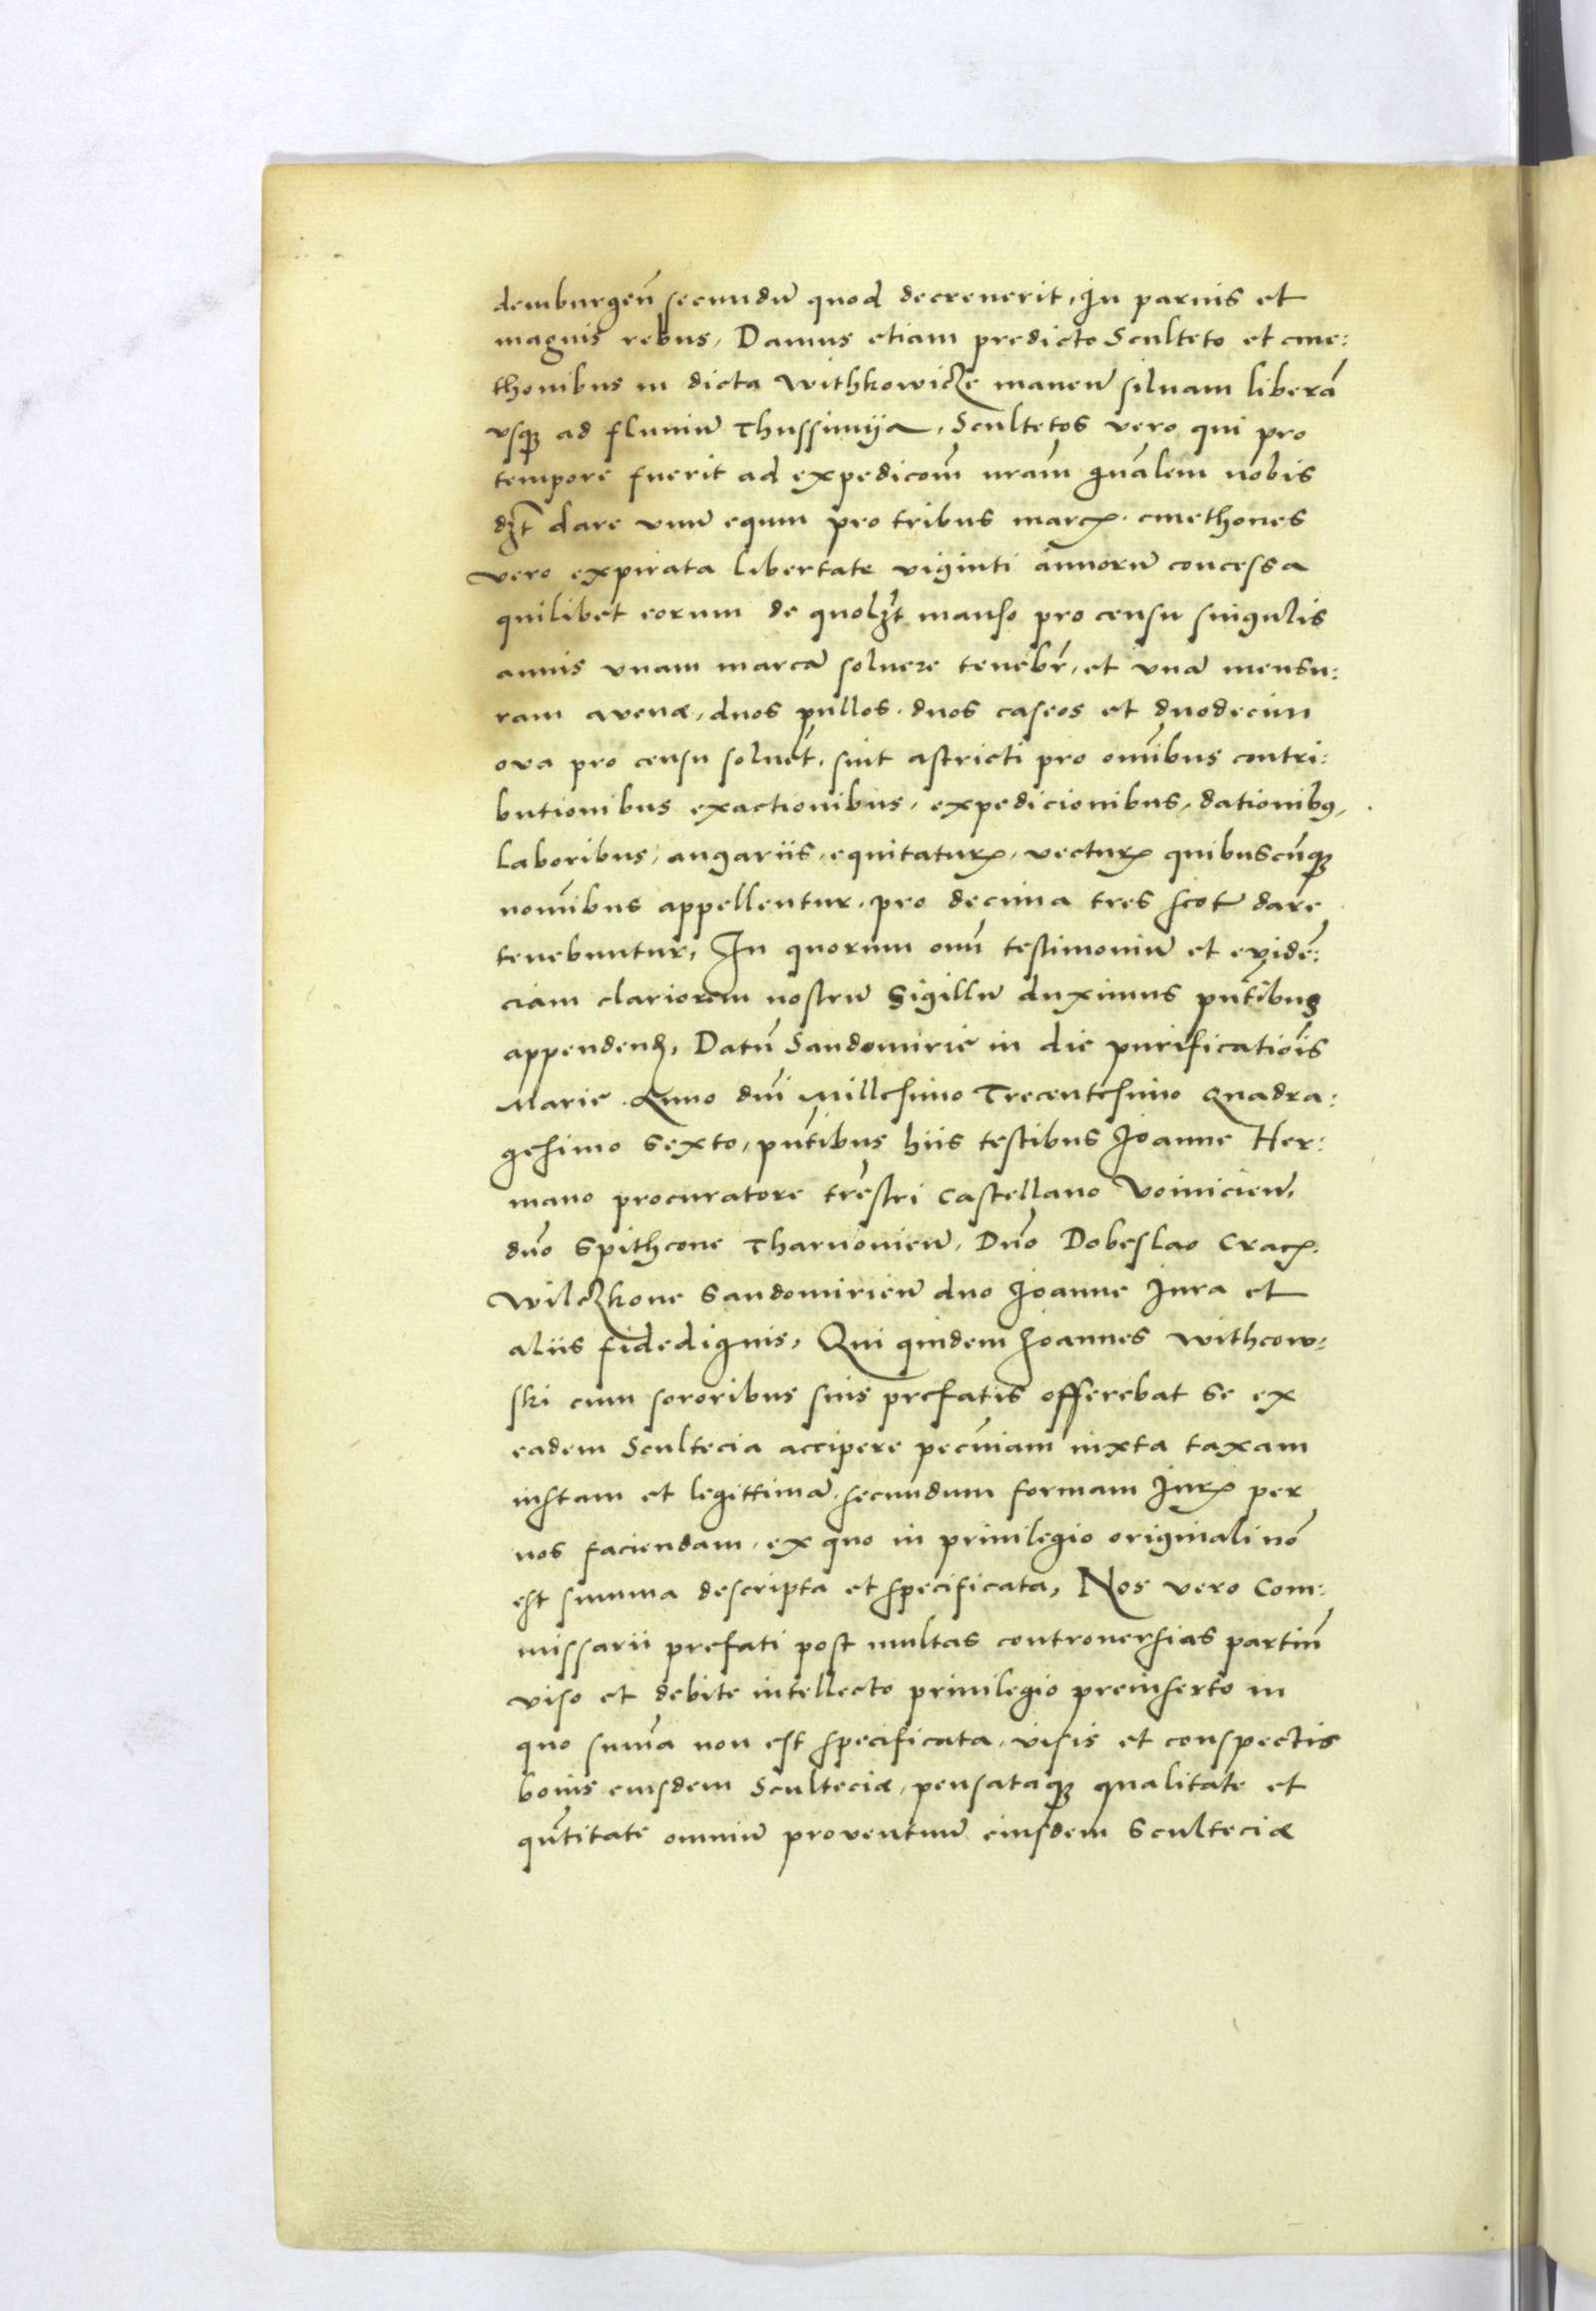 demburgen̄ secundū quod decreuerit, in paruis et
magnis rebus, Damus etiam predicto Sculteto et cme:
thonibus in dicta Withkowicze manen̄ siluam liberā
vsq̨ ad fluuiū Thussimya, Scultetos vero qui pro
tempore fuerit ad expedicōm nrām gnālem nobis
dʒt dare vnū equm pro tribus marcꝭ. cmethones
vero expirata libertate viginti annorū concessa
quilibet eorum de quolʒt manso pro censu singulis
annis vnam marcā soluere tenebr̄, et vnā mensu:
ram avenæ, duos pullos. duos caseos et duodecim
ova pro censu soluēt, sint astricti pro om̄ibus contri:
butionibus exactionibus, expedicionibus, dationibꝰ,
laboribus, angariis, equitaturꝭ, vecturꝭ quibuscūq̨
nom̄ibus appellentur, pro decima tres scot̄ dare
tenebuntur, In quorum om̄ testimoniū et evidē:
ciam clariorem nostrū Sigillū duximus pn̄tibus
appendenꝺ, Datū Sandomirie in die purificatiōis
Marie. Anno dn̄i Millesimo Trecentesimo Quadra:
gesimo sexto, pn̄tibus hiis testibus Joanne Her:
mano procuratore tr̄estri Castellano Voinicien̄,
dn̄o Spithcone Tharnouien̄, Dn̄o Dobeslao Cracꝭ.
Wilczkone Sandomirien̄ dno Joanne Jura et
aliis fidedignis, Qui quidem Joannes Withcow:
ski cum sororibus suis prefatis offerebat se ex
eadem Scultecia accipere pecūiam iuxta taxam
iustam et legittimā, secundum formam Jurꝭ per
nos faciendam, ex quo in priuilegio originali nō
est summa descripta et specificata, Nos vero Com:
missarii prefati post multas controuersias partiū
viso et debite intellecto priuilegio preinserto in
quo sum̄a non est specificata, visis et conspectis
bonis eiusdem Sculteciæ, pensataq̨ qualitate et
qn̄titate omniū proventuū eiusdem Sculteciæ